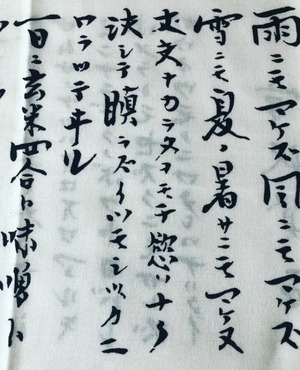 雨ニモマケズ風ニモマケズ
雪ニモ夏ノ暑サニモマケヌ
丈夫ナカラダヲモチ慾ハナク
決シテ瞋ラズイツモシヅカニ
ワラツテヰル
一日ニ玄米四合ト味噌ト